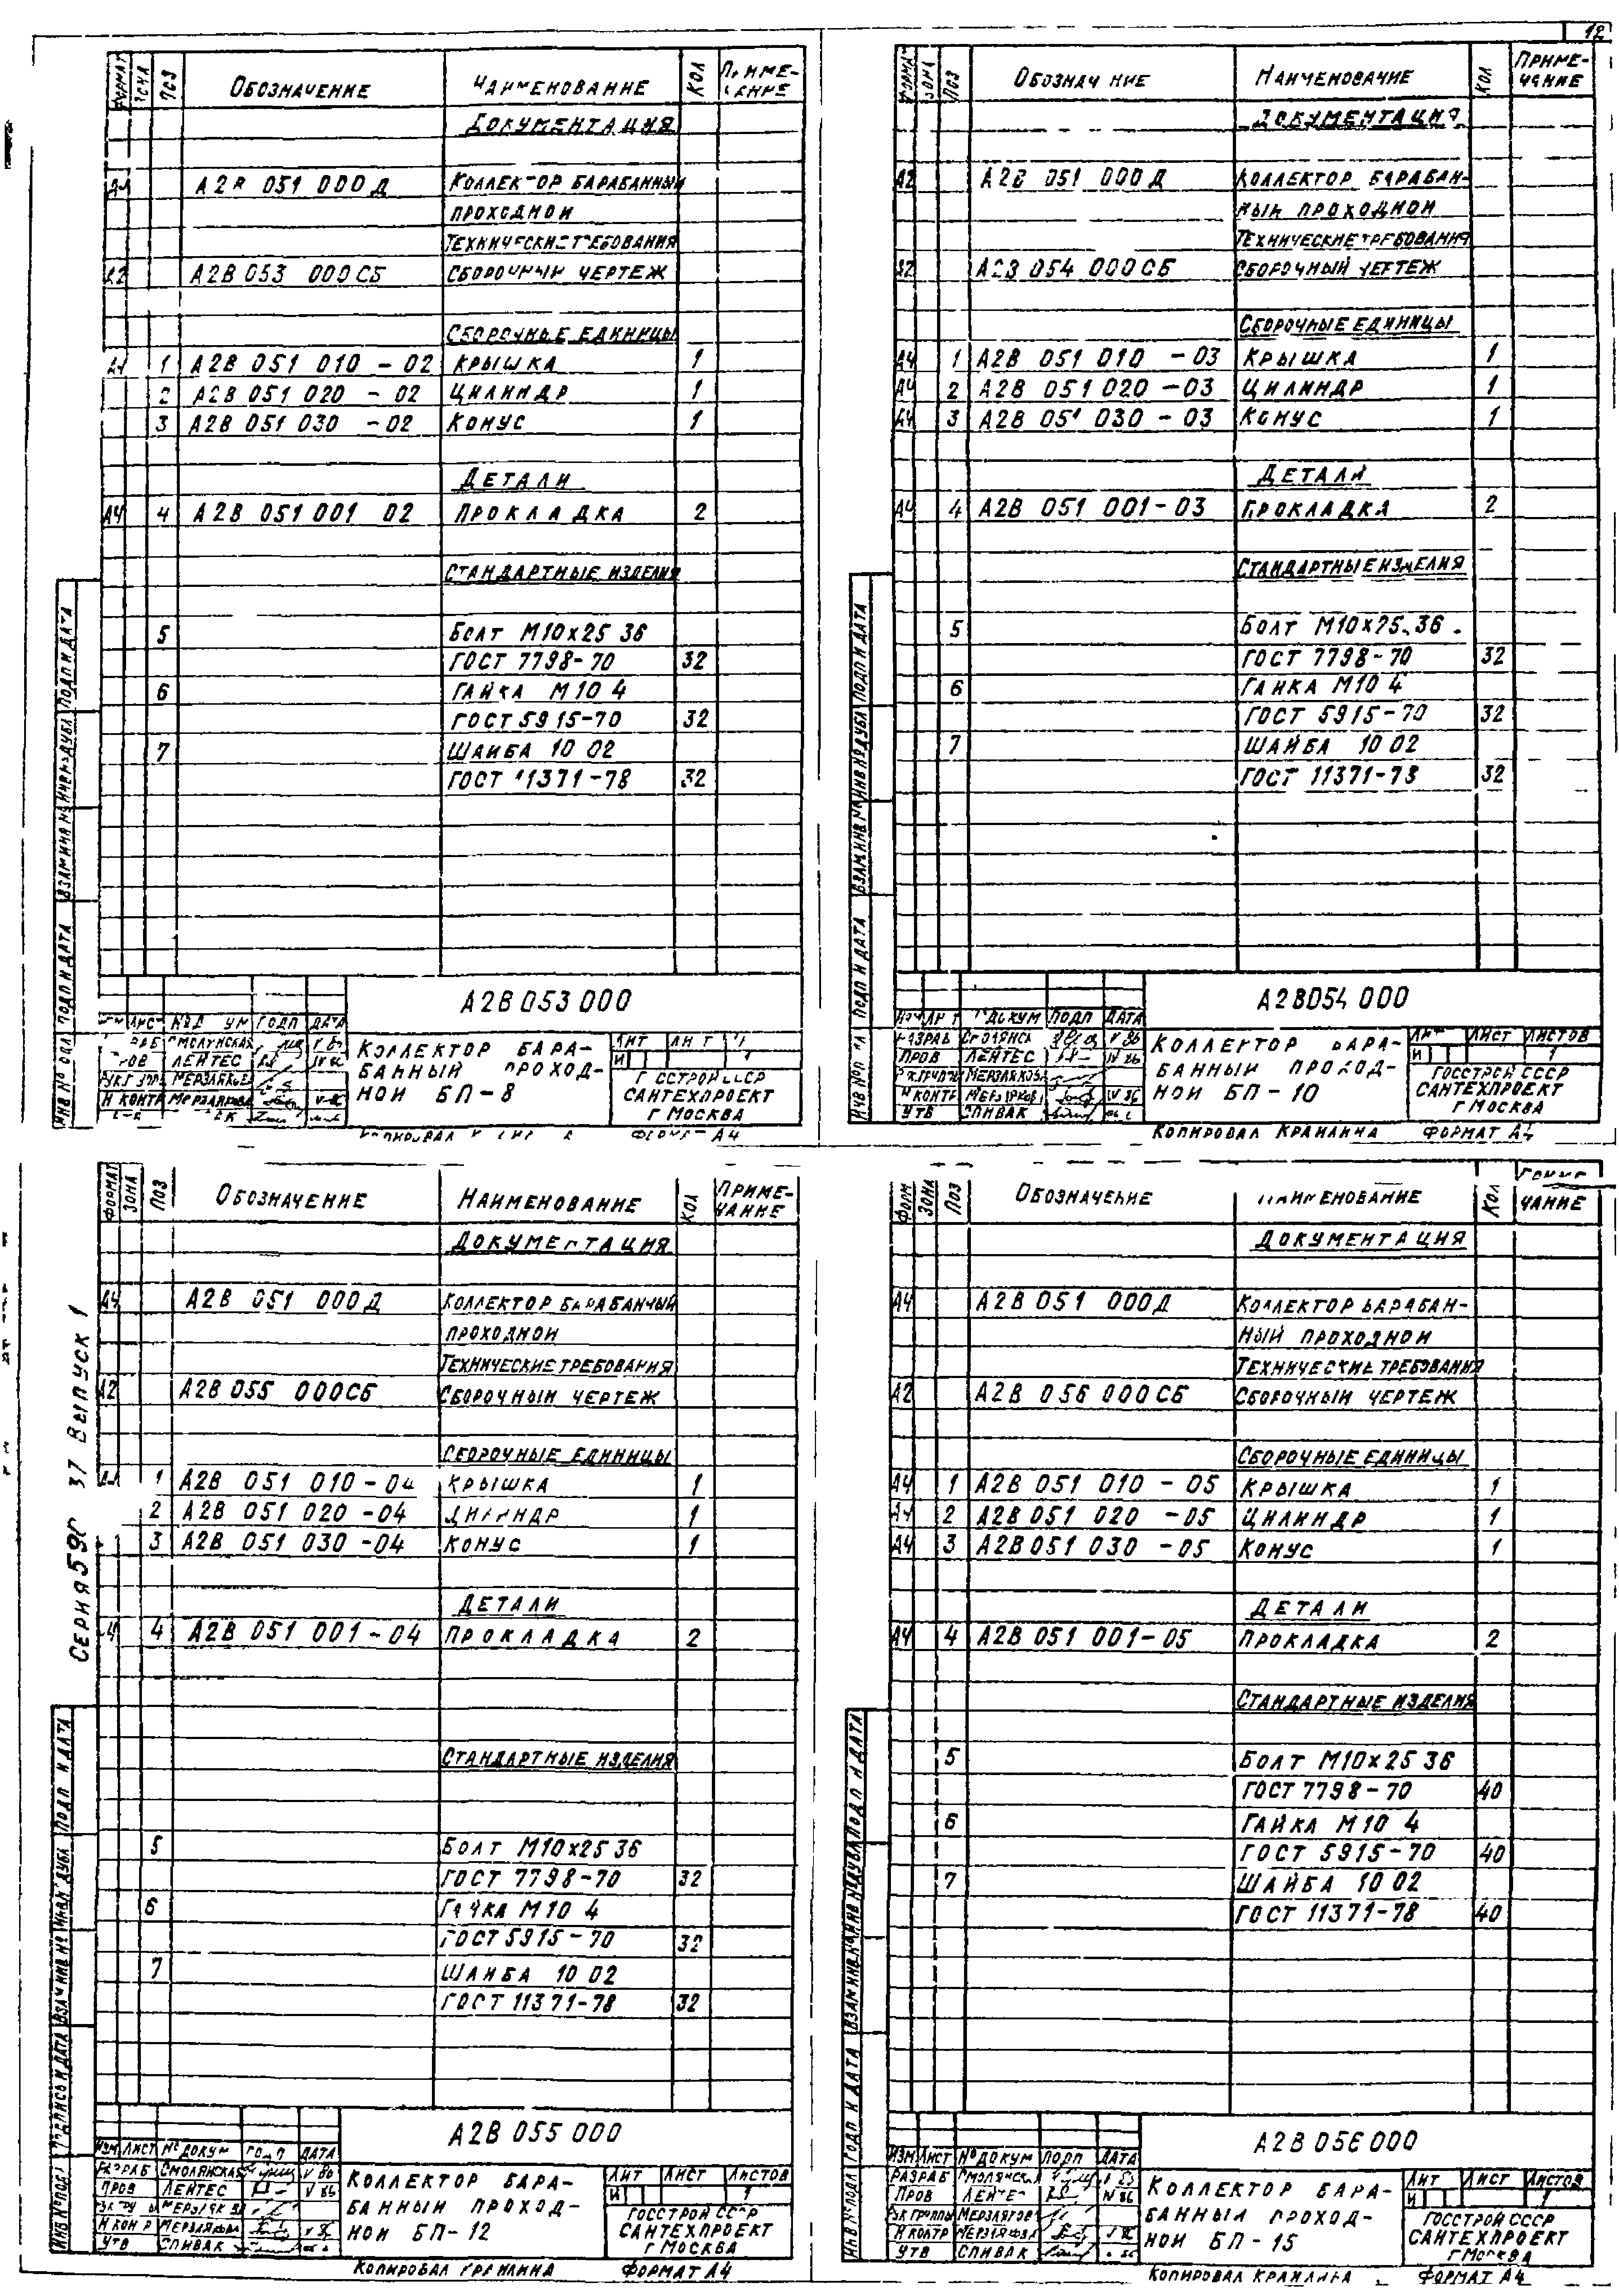 12
ФОРМАТ ЗОНА ПОЗ ОБОЗНАЧЕНИЕ НАИМЕНОВАНИЕ КОЛ ПРИМЕ-
ЧАНИЕ
ДОКУМЕНТАЦИЯ
А4 А2В 051 000Д КОЛЛЕКТОР БАРАБАННЫЙ
ПРОХОДНОЙ
ТЕХНИЧЕСКИЕ ТРЕБОВАНИЯ
А2 А2В 053 000СБ СБОРОЧНЫЙ ЧЕРТЕЖ
СБОРОЧНЫЕ ЕДИНИЦЫ
А4 1 А2В 051 010 - 02 КРЫШКА 1
2 А2В 051 020 - 02 ЦИЛИНДР 1
3 А2В 051 030 - 02 КОНУС 1
ДЕТАЛИ
А4 4 А2В 051 001 02 ПРОКЛАДКА 2
СТАНДАРТНЫЕ ИЗДЕЛИЯ
5 БОЛТ М10х25 36
ГОСТ 7798-70 32
6 ГАЙКА М10 4
ГОСТ 5915-70 32
7 ШАЙБА 10 02
ГОСТ 11371-78 32
А2В 053 000
ЛИСТ ДАТА
ЛЕЙТЕС
Н КОНТР МЕРЗЛЯКОВА
КОЛЛЕКТОР БАРА-
БАННЫЙ ПРОХОД-
НОЙ БП-8
ЛИТ ЛИСТ
И
ГОССТРОЙ СССР
САНТЕХПРОЕКТ
Г МОСКВА
КОПИРОВАЛ ФОРМАТ А4
ИНВ № ПОДЛ ПОДП И ДАТА ВЗАМ ИНВ № ИНВ № ДУБЛ ПОДП И ДАТА
ФОРМАТ ЗОНА ПОЗ ОБОЗНАЧ НИЕ НАИМЕНОВАНИЕ КОЛ ПРИМЕ-
ЧАНИЕ
ДОКУМЕНТАЦИЯ
А2 А2В 051 000Д КОЛЛЕКТОР БАРАБАН-
НЫЙ ПРОХОДНОЙ
ТЕХНИЧЕСКИЕ ТРЕБОВАНИЯ
А2 А2В 054 000СБ СБОРОЧНЫЙ ЧЕРТЕЖ
СБОРОЧНЫЕ ЕДИНИЦЫ
А4 1 А2В 051 010 - 03 КРЫШКА 1
А4 2 А2В 051 020 - 03 ЦИЛИНДР 1
А4 3 А2В 051 030 - 03 КОНУС 1
ДЕТАЛИ
А4 4 А2В 051 001-03 ПРОКЛАДКА 2
СТАНДАРТНЫЕ ИЗДЕЛИЯ
5 БОЛТ М10х25.36
ГОСТ 7798-70 32
6 ГАЙКА М10 4
ГОСТ 5915-70 32
7 ШАЙБА 10 02
ГОСТ 11371-78 32
А2В054 000
№ ДОКУМ ПОДП ДАТА
РАЗРАБ СМОЛЯНСК
ПРОВ ЛЕЙТЕС
РУК ГРУППЫ МЕРЗЛЯКОВА
Н КОНТР МЕРЗЛЯКОВА
УТВ СПИВАК
КОЛЛЕКТОР БАРА-
БАННЫЙ ПРОХОД-
НОЙ БП-10
ЛИТ ЛИСТ ЛИСТОВ
И 1
ГОССТРОЙ СССР
САНТЕХПРОЕКТ
Г МОСКВА
КОПИРОВАЛ КРАИЛИНА ФОРМАТ А4
ПОДП И ДАТА ВЗАМ ИНВ № ИНВ № ДУБЛ ПОДП И ДАТА
СЕРИЯ 590 37 ВЫПУСК 1
ФОРМАТ ЗОНА ПОЗ ОБОЗНАЧЕНИЕ НАИМЕНОВАНИЕ КОЛ ПРИМЕ-
ЧАНИЕ
ДОКУМЕНТАЦИЯ
А4 А2В 051 000Д КОЛЛЕКТОР БАРАБАННЫЙ
ПРОХОДНОЙ
ТЕХНИЧЕСКИЕ ТРЕБОВАНИЯ
А2 А2В 055 000СБ СБОРОЧНЫЙ ЧЕРТЕЖ
СБОРОЧНЫЕ ЕДИНИЦЫ
1 А2В 051 010-04 КРЫШКА 1
2 А2В 051 020 -04 ЦИЛИНДР 1
3 А2В 051 030 -04 КОНУС 1
ДЕТАЛИ
4 А2В 051 001-04 ПРОКЛАДКА 2
СТАНДАРТНЫЕ ИЗДЕЛИЯ
5 БОЛТ М10х25 36
ГОСТ 7798-70 32
6 ГАЙКА М10 4
ГОСТ 5915-70 32
7 ШАЙБА 10 02
ГОСТ 11371-78 32
А2В 055 000
ИЗМ ЛИСТ № ДОКУМ ПОДП ДАТА
РАЗРАБ СМОЛЯНСКАЯ V 86
ПРОВ ЛЕЙТЕС V 86
Н КОНТР МЕРЗЛЯКОВА
УТВ СПИВАК
КОЛЛЕКТОР БАРА-
БАННЫЙ ПРОХОД-
НОЙ БП-12
ЛИТ ЛИСТ ЛИСТОВ
И 1
ГОССТРОЙ СССР
САНТЕХПРОЕКТ
Г МОСКВА
КОПИРОВАЛ КРАИЛИНА ФОРМАТ А4
ИНВ № ПОДЛ ПОДПИСЬ И ДАТА ВЗАМ ИНВ № ИНВ № ДУБЛ ПОДП И ДАТА
ФОРМ ЗОНА ПОЗ ОБОЗНАЧЕНИЕ НАИМЕНОВАНИЕ КОЛ ПРИМЕ-
ЧАНИЕ
ДОКУМЕНТАЦИЯ
А4 А2В 051 000Д КОЛЛЕКТОР БАРАБАН-
НЫЙ ПРОХОДНОЙ
ТЕХНИЧЕСКИЕ ТРЕБОВАНИЯ
А2 А2В 056 000СБ СБОРОЧНЫЙ ЧЕРТЕЖ
СБОРОЧНЫЕ ЕДИНИЦЫ
А4 1 А2В 051 010 - 05 КРЫШКА 1
А4 2 А2В 051 020 -05 ЦИЛИНДР 1
А4 3 А2В 051 030 -05 КОНУС 1
ДЕТАЛИ
А4 4 А2В 051 001-05 ПРОКЛАДКА 2
СТАНДАРТНЫЕ ИЗДЕЛИЯ
5 БОЛТ М10х25 36
ГОСТ 7798-70 40
6 ГАЙКА М10 4
ГОСТ 5915-70 40
7 ШАЙБА 10 02
ГОСТ 11371-78 40
А2В 056 000
ИЗМ ЛИСТ № ДОКУМ ПОДП ДАТА
РАЗРАБ СМОЛЯНСКАЯ
ПРОВ ЛЕЙТЕС IV 86
РУК ГРУППЫ МЕРЗЛЯКОВА
Н КОНТР МЕРЗЛЯКОВА
УТВ СПИВАК
КОЛЛЕКТОР БАРА-
БАННЫЙ ПРОХОД-
НОЙ БП-15
ЛИТ ЛИСТ ЛИСТОВ
И 1
ГОССТРОЙ СССР
САНТЕХПРОЕКТ
Г МОСКВА
КОПИРОВАЛ КРАИЛИНА ФОРМАТ А4
ИНВ № ПОДЛ ПОДП И ДАТА ВЗАМ ИНВ № ИНВ № ДУБЛ ПОДП И ДАТА